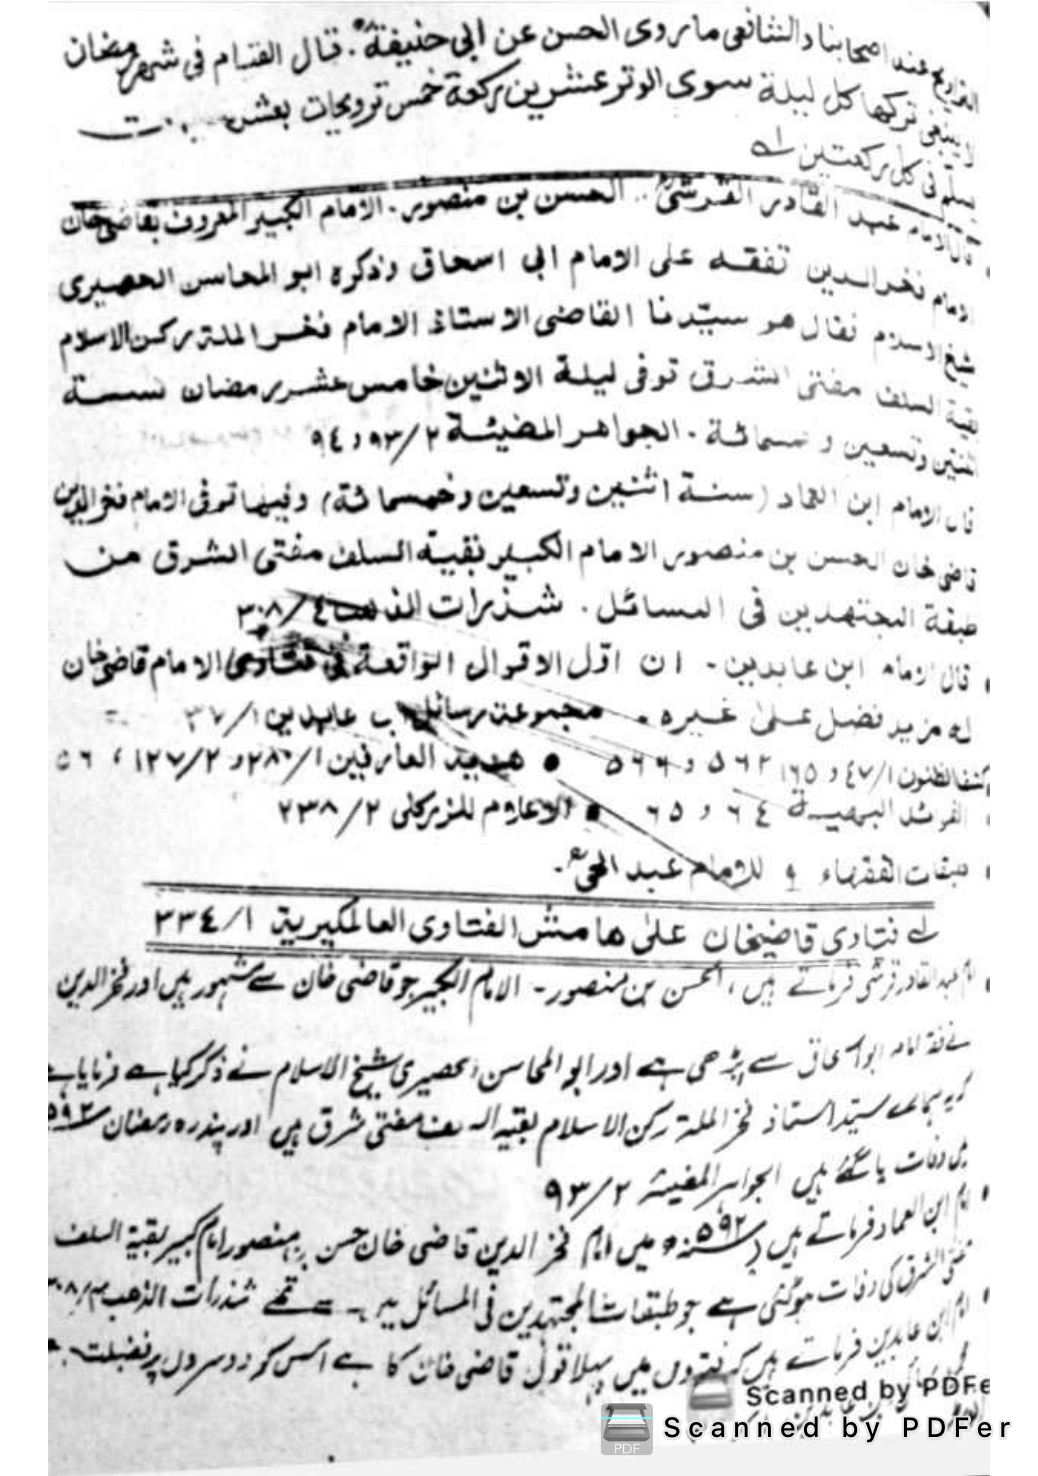 التراويح عند اصحابنا والشافعی ماروی الحسن عن ابی حنیفةؒ. قال القيام فی شهر رمضان
لا ينبغی تركها كل ليلة سوی الوتر عشرين ركعة خمس ترويحات بعشر
يسلم فی كل ركعتين لے
قال الامام عبد القادر القرشیؒ .. الحسن بن منصور. الامام الكبير المعروف بقاضی خان
الامام فخر الدين تفقه علی الامام ابی اسحاق وذكره ابو المحاسن الحصيری
شيخ الاسلام فقال هو سيّدنا القاضی الاستاذ الامام فخر الملة ركن الاسلام
بقية السلف مفتی الشرق توفی ليلة الاثنين خامس عشر رمضان سنة
اثنتين وتسعين و خمسمائة. الجواهر المضيئة ٢/٩٣، ٩٤
قال الامام ابن العماد (سنة اثنتين وتسعين وخمسمائة) وفيها توفی الامام فخر الدين
قاضی خان الحسن بن منصور الامام الكبير بقية السلف مفتی الشرق من
طبقة المجتهدين فی المسائل. شذرات الذهب ٤/٣٠٨
قال الامام ابن عابدين. ان اوّل الاقوال الواقعة فی فتاوی الامام قاضی خان
له مزيد فضل علی غيره. مجموعة رسائل ابن عابدين ١/٣٧
كشف الظنون ١/٤٧ و ١٦٥ ٥٦٢ و ٥٦٦ • هدية العارفين ١/٢٨٠ و ٢/١٢٧، ٥٦
الفوائد البهية ٦٤ و ٦٥ • الاعلام للزركلی ٢/٢٣٨
طبقات الفقهاء و للامام عبد الحیؒ.
لے فتاوی قاضيخان علیٰ هامش الفتاوی العالمگيرية ١/٣٣٤
امام عبد القادر قرشی فرماتے ہیں، الحسن بن منصور۔ الامام الکبیر جو قاضی خان سے مشہور ہیں اور فخر الدین
نے فقہ امام ابو اسحاق سے پڑھی ہے اور ابو المحاسن الحصیری شیخ الاسلام نے ذکر کیا ہے فرمایا ہے
کہ یہ ہمارے سید استاذ فخر الملۃ رکن الاسلام بقیۃ السلف مفتی شرق ہیں اور پندرہ رمضان ۵۹۲
میں وفات پا گئے ہیں الجواہر المضیئہ ۲/۹۳
امام ابن العماد فرماتے ہیں (سنہ ۵۹۲ھ) میں امام فخر الدین قاضی خان حسن بن منصور امام کبیر بقیۃ السلف
مفتی الشرق کی وفات ہوگئی ہے جو طبقات المجتہدین فی المسائل میں سے تھے شذرات الذہب ۴/۳۰۸
امام ابن عابدین فرماتے ہیں کہ فتووں میں پہلا قول قاضی خان کا ہے اس کو دوسروں پر فضیلت
Scanned by PDFe
Scanned by PDFer
PDF